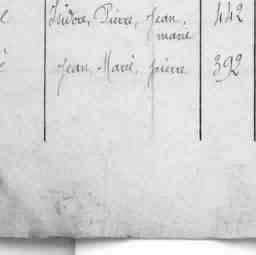 e Isidore, Pierre, Jean, 442
marie
é Jean, Marie, pierre 392